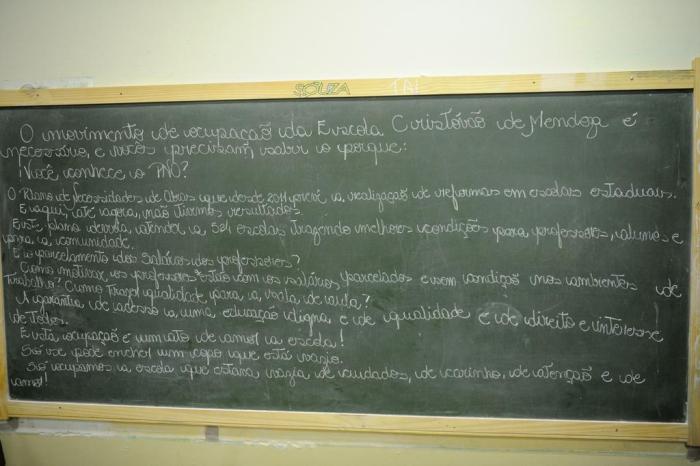 SOUZA
O movimento de ocupação da Escola Cristóvão de Mendoza é
necessário, e vocês precisam saber o porque:
Você conhece o PNO?
O Plano de Necessidades de Obras que desde 2011 prevê a realização de reformas em escolas estaduais.
E aqui, até agora, não tivemos resultados.
Este plano deveria atender a 504 escolas trazendo melhores condições para professores, alunos e
para a comunidade.
E o parcelamento dos salários dos professores?
Como motivar os professores estão com os salários parcelados e sem condição nos ambientes de
trabalho? Como trazer qualidade para a sala de aula?
A garantia de acesso a uma educação digna e de qualidade é de direito e interesse
de todos.
Esta ocupação é um ato de amor a escola!
Só se pode encher um copo que está vazio.
Só ocupamos a escola que estava vazia de cuidados, de carinho, de atenção e de
amor!